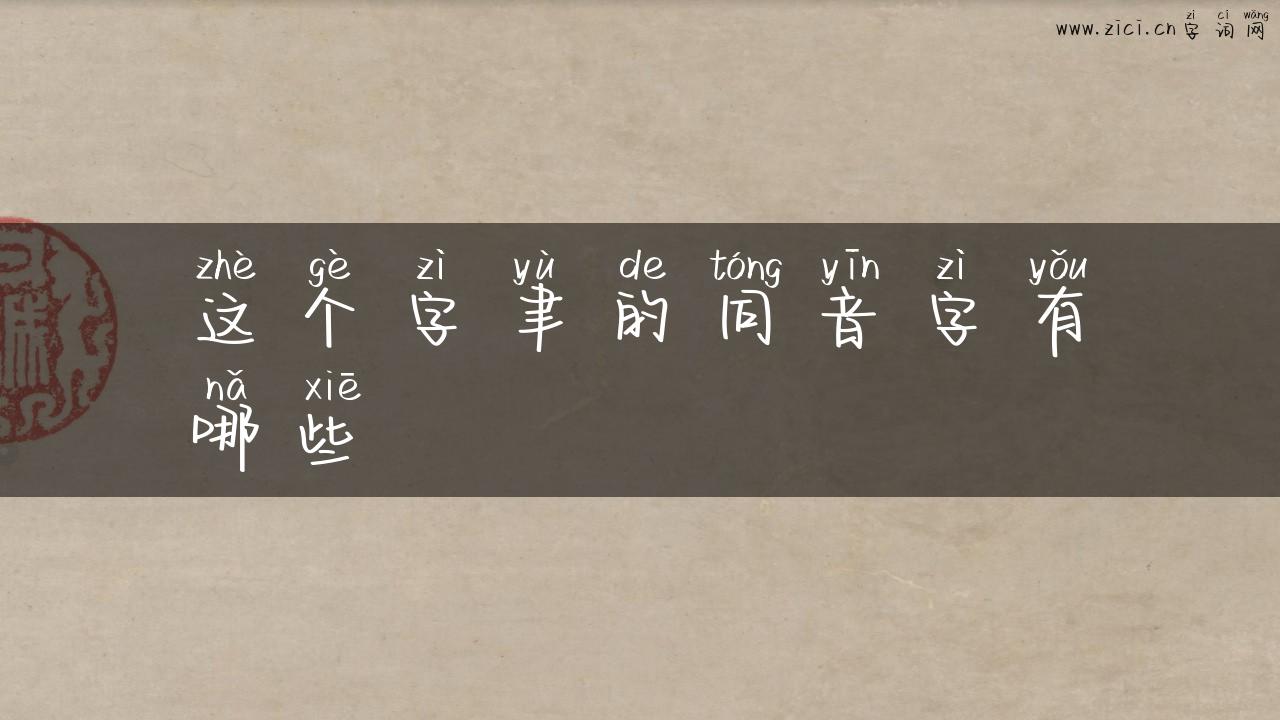 www.zici.cn字词网
zì cí wǎng
zhè gè zì yù de tóng yīn zì yǒu
这个字聿的同音字有
nǎ xiē
哪些